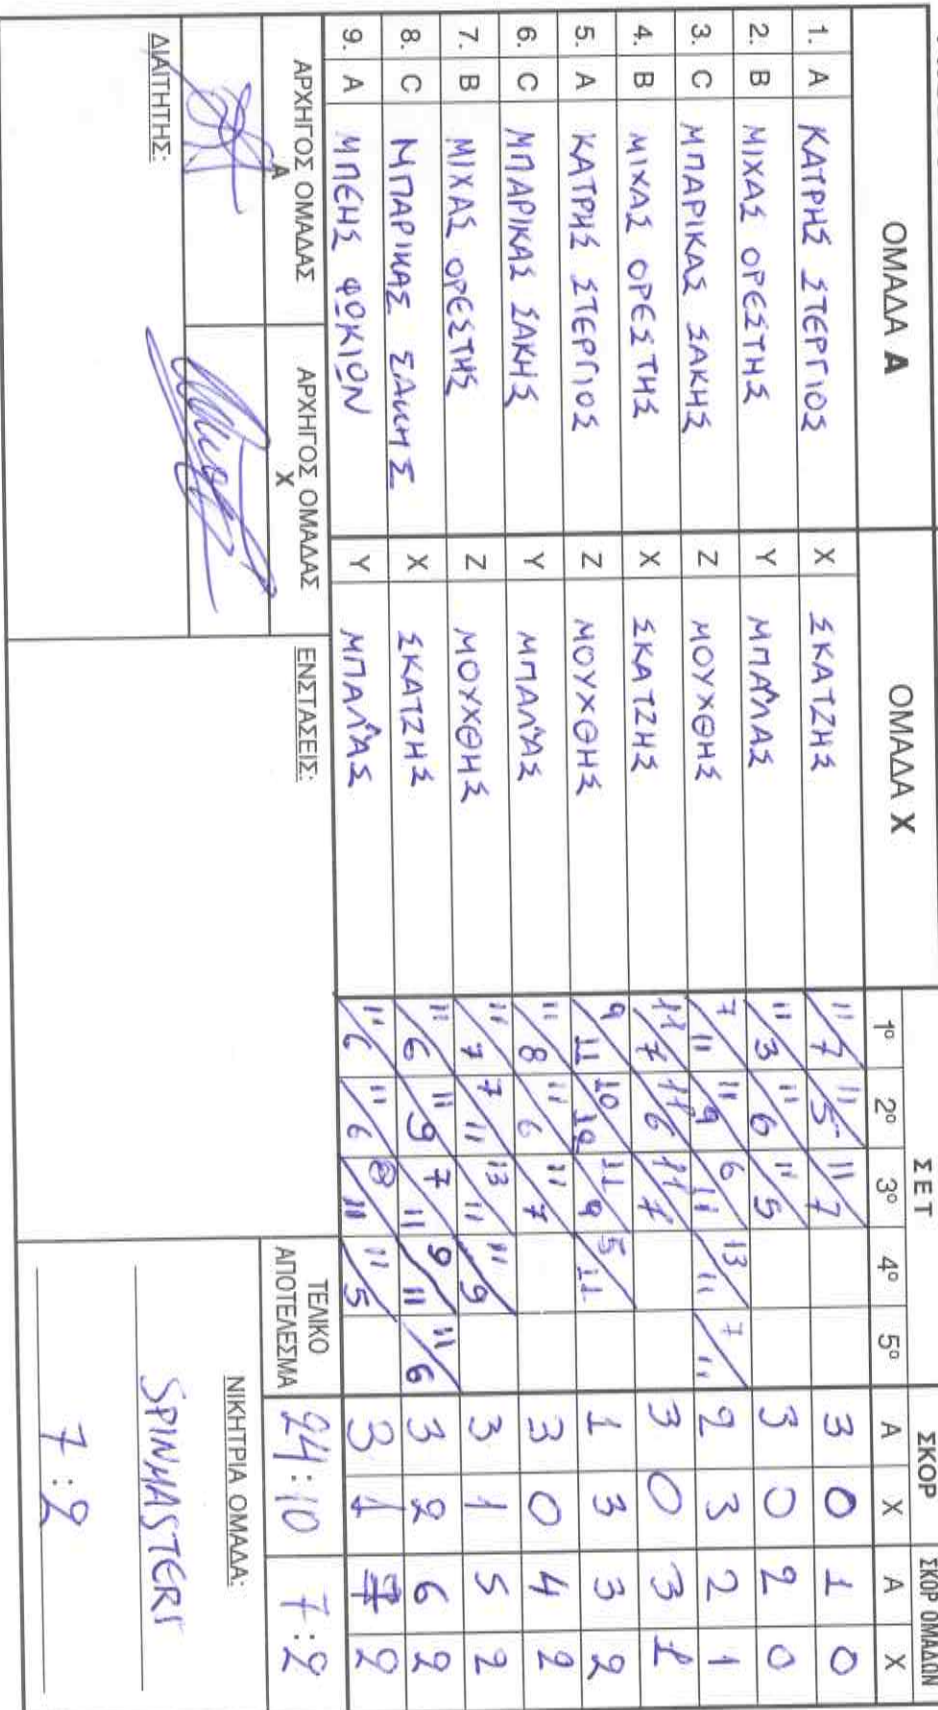 ΟΜΑΔΑ Α ΟΜΑΔΑ Χ ΣΕΤ ΣΚΟΡ ΣΚΟΡ ΟΜΑΔΩΝ
1º 2º 3º 4º 5º Α Χ Α Χ
1. A ΚΑΤΡΗΣ ΣΤΕΡΓΙΟΣ X ΣΚΑΤΖΗΣ 11/7 11/5 11/7 3 0 1 0
2. B ΜΙΧΑΣ ΟΡΕΣΤΗΣ Y ΜΠΑΛΛΑΣ 11/3 11/6 11/5 3 0 2 0
3. C ΜΠΑΡΙΚΑΣ ΣΑΚΗΣ Z ΜΟΥΧΘΗΣ 7/11 11/9 6/11 13/11 7/11 2 3 2 1
4. B ΜΙΧΑΣ ΟΡΕΣΤΗΣ X ΣΚΑΤΖΗΣ 11/7 11/6 11/7 3 0 3 1
5. A ΚΑΤΡΗΣ ΣΤΕΡΓΙΟΣ Z ΜΟΥΧΘΗΣ 9/11 10/12 11/9 5/11 1 3 3 2
6. C ΜΠΑΡΙΚΑΣ ΣΑΚΗΣ Y ΜΠΑΛΛΑΣ 11/8 11/6 11/7 3 0 4 2
7. B ΜΙΧΑΣ ΟΡΕΣΤΗΣ Z ΜΟΥΧΘΗΣ 11/7 7/11 13/11 11/9 3 1 5 2
8. C ΜΠΑΡΙΚΑΣ ΣΑΚΗΣ X ΣΚΑΤΖΗΣ 11/6 11/9 7/11 9/11 11/6 3 2 6 2
9. A ΜΠΕΗΣ ΦΩΚΙΩΝ Y ΜΠΑΛΛΑΣ 11/6 11/6 8/11 11/5 3 1 7 2
ΑΡΧΗΓΟΣ ΟΜΑΔΑΣ Α ΑΡΧΗΓΟΣ ΟΜΑΔΑΣ Χ ΕΝΣΤΑΣΕΙΣ: ΤΕΛΙΚΟ ΑΠΟΤΕΛΕΣΜΑ 24:10 7:2
ΝΙΚΗΤΡΙΑ ΟΜΑΔΑ:
ΔΙΑΙΤΗΤΗΣ: SPINMASTERS
7:2